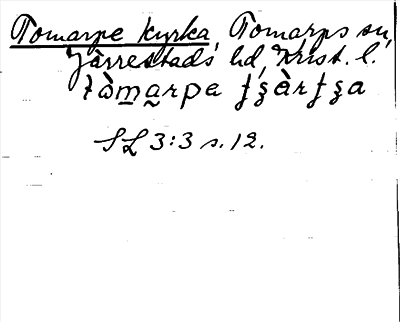 Tomarpe kyrka, Tomarps sn,
Järrestads hd, Krist. l.
tòmarpa
SL 3:3 s. 12.